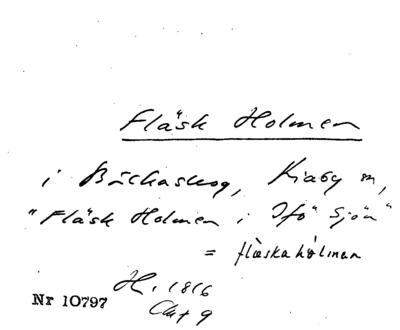 Fläsk Holmen
i Bäckaskog, Kiaby sn,
"Fläsk Holmen i Ifö Sjön"
= flæskahòlman
H. 1816
Akt 9
Nr 10797